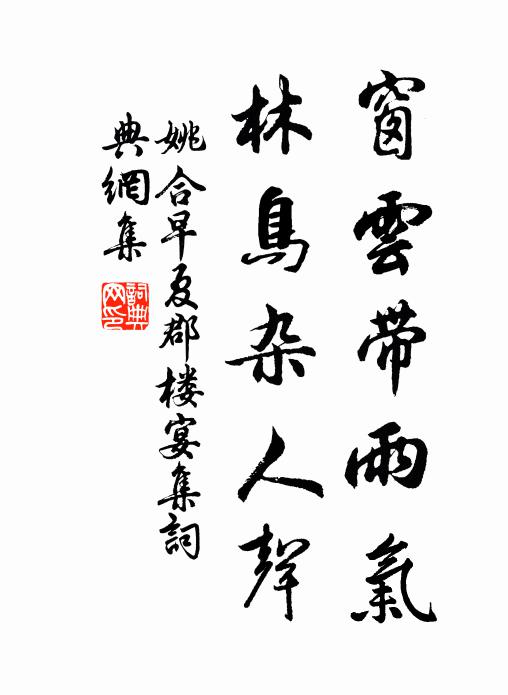 窗雲帶雨氣
林鳥杂人聲
姚合早夏郡楼宴集詞
典網集
詞典网印